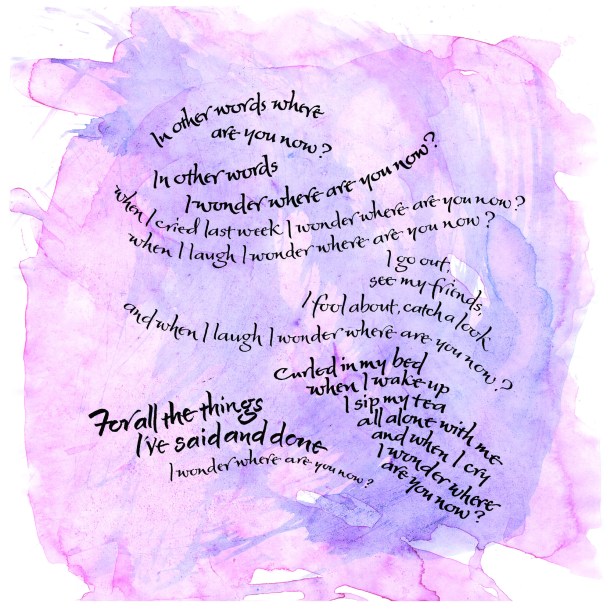 In other words where
are you now?
In other words
I wonder where are you now?
when I cried last week I wonder where are you now?
when I laugh I wonder where are you now?
I go out,
see my friends,
I fool about, catch a look
and when I laugh I wonder where are you now?
Curled in my bed
when I wake up
I sip my tea
all alone with me
and when I cry
I wonder where
are you now?
For all the things
I've said and done
I wonder where are you now?